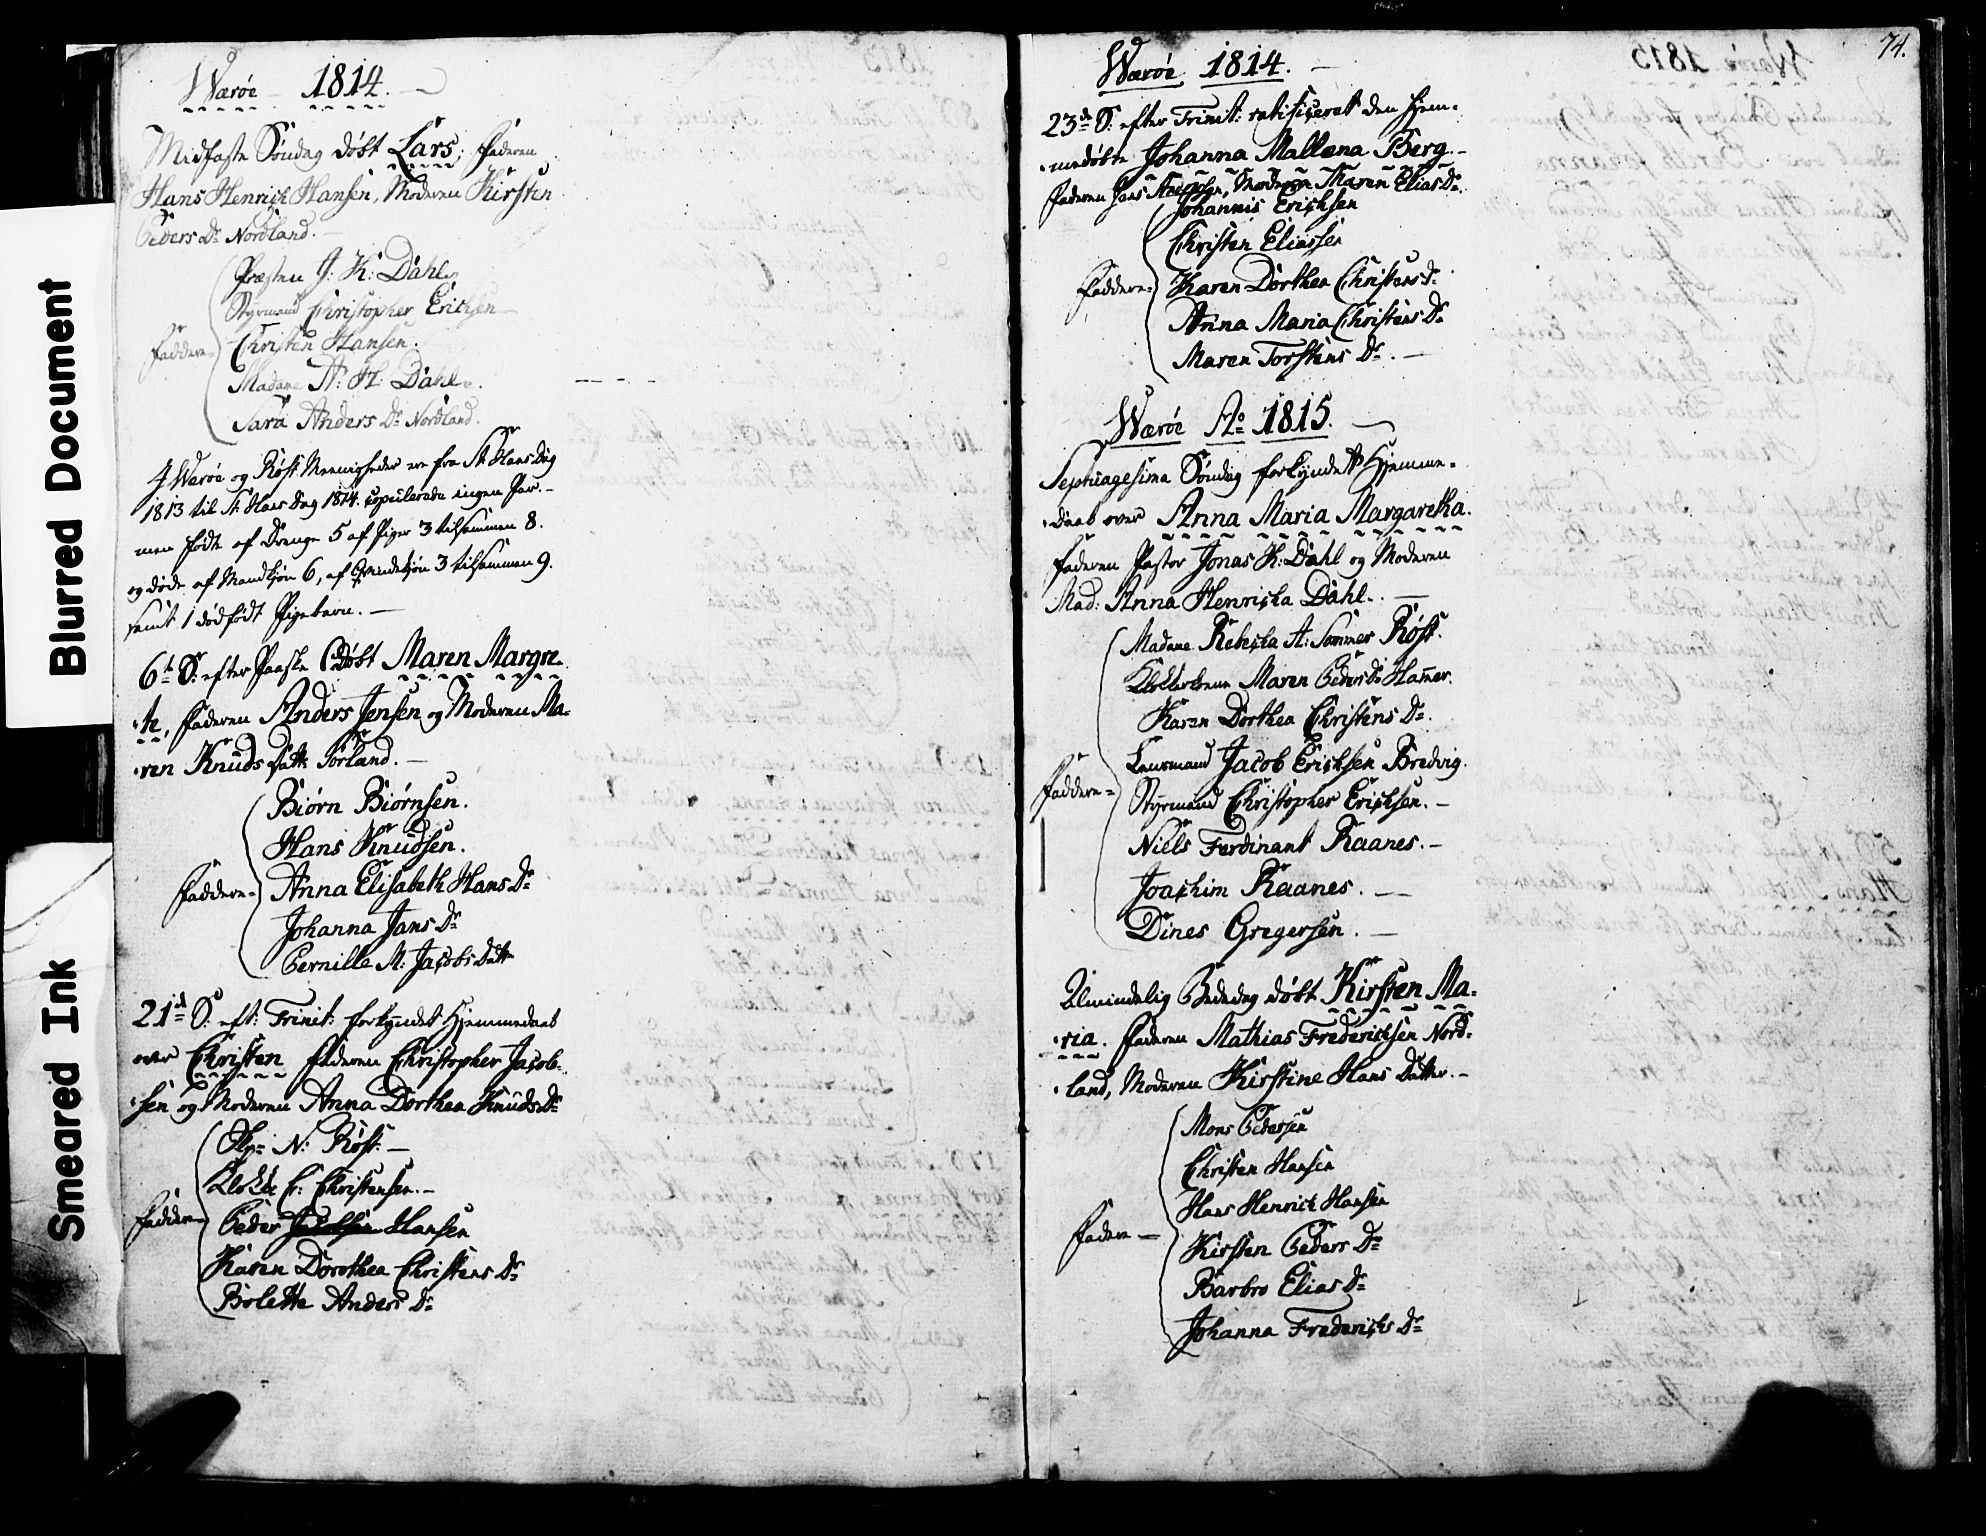 Blurred Document
Smeared Ink
Værøe 1814.
Midfaste Søndag døbt Lars, Faderen
Hans Henrich Hansen, Moderen Kirsten
Peders Dr Nordland.
Præsten J: K: Dahl.
Styrmand Christopher Erichsen
Faddere
Christen Hansen.
Madame A: H: Dahl.
Sara Anders Dr Nordland.
I Værøe og Røst Menigheder ere fra St Hans Dag
1813 til St Hans Dag 1814. copulerede ingen Par.
men fødte af Drenge 5 af Piger 3 tilsammen 8.
og døde af Mandkjøn 6, af Qvindekjøn 3 tilsammen 9.
samt 1 dødfødt Pigebarn.
6te S: efter Paaske døbt Maren Margre-
te, Faderen Anders Jensen og Moderen Ma-
ren Knuds Datt: Sørland.
Biørn Biørnsen.
Hans Knudsen.
Faddere
Anna Elisabeth Hans Dr
Johanna Jans Dr
Pernille M: Jacobs Datter
21de S: eft: Trinit: forkyndet Hjemmedaab
over Christen Faderen Christopher Jacob-
sen og Moderen Anna Dorthea Knuds Dr
N: Røst.
Klokker C: Christensen.
Faddere
Peder Hansen
Karen Dorothea Christens Dr
Bolette Anders Dr
74.
Værøe 1814.
23de S: efter Trinit: ratificeret den Hjem-
medøbte Johanna Mallena Berg.
Faderen Jens, Moderen Maren Elias Dr.
Johannis Erichsen
Christen Eliassen
Faddere
Karen Dorthea Christens Dr
Anna Maria Christens Dr
Maren Torstens Dr.
Værøe Ao 1815.
Septuagesima Søndag forkyndet Hjemme-
daab over Anna Maria Margaretha.
Faderen Pastor Jonas K: Dahl og Moderen
Mad: Anna Henricha Dahl.
Madame Rebecka A: Sommer Røst.
Klokkerkone Maren Peders Dr Hamer.
Karen Dorthea Christens Dr.
Lensmand Jacob Erichsen Bredvig.
Faddere
Styrmand Christopher Erichsen.
Niels Ferdinant Raanes.
Joachim Raanes.
Dines Gregersen.
Almindelig Bededag døbt Kirsten Ma-
ria. Faderen Mathias Frederichsen Nord-
land, Moderen Kirstine Hans Datter.
Mons Pedersen
Christen Hansen
Hans Henrich Hansen
Faddere
Kirsten Peders Dr
Barbro Elias Dr
Johanna Frederichs Dr